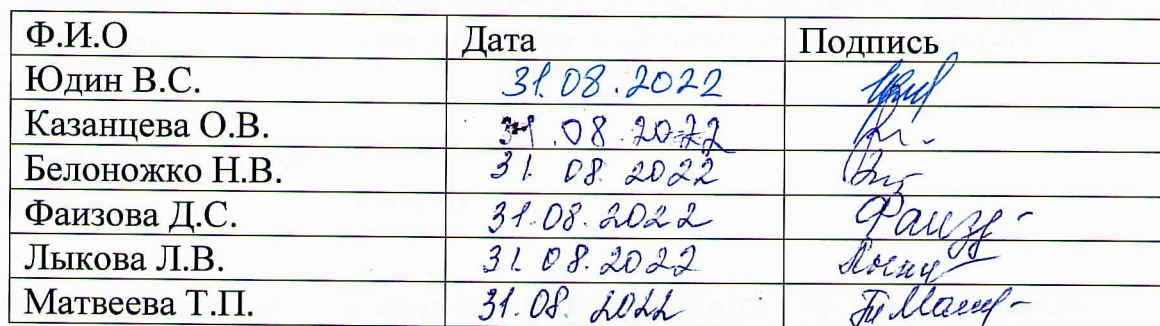 Ф.И.О Дата Подпись
Юдин В.С. 31.08.2022
Казанцева О.В. 31.08.2022
Белоножко Н.В. 31.08.2022
Фаизова Д.С. 31.08.2022
Лыкова Л.В. 31.08.2022
Матвеева Т.П. 31.08.2022